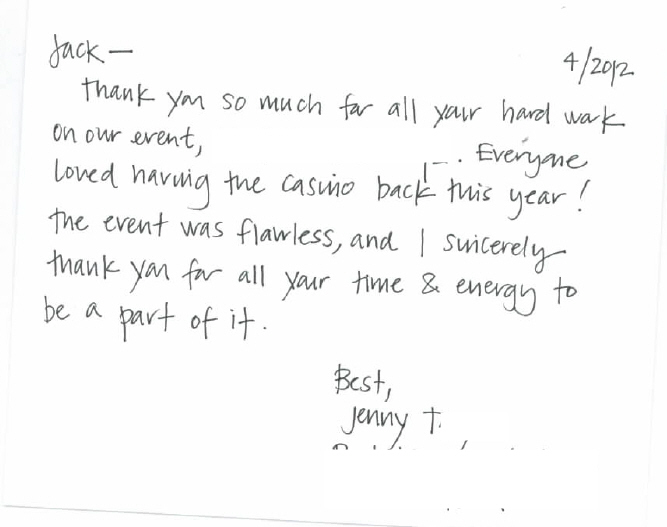 Jack —
4/2012
Thank you so much for all your hard work
on our event,
. Everyone
loved having the casino back this year!
The event was flawless, and I sincerely
thank you for all your time & energy to
be a part of it.
Best,
Jenny T.